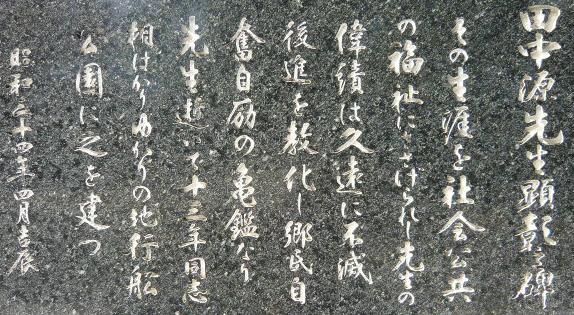 田中源先生顕彰之碑
その生涯を社会公共
の福祉にささげられし先生の
偉績は久遠に不滅
後進を教化し郷民自
奮自励の亀鑑なり
先生逝いて十三年同志
相はかりゆかりの地行船
公園に之を建つ
昭和三十四年四月吉辰